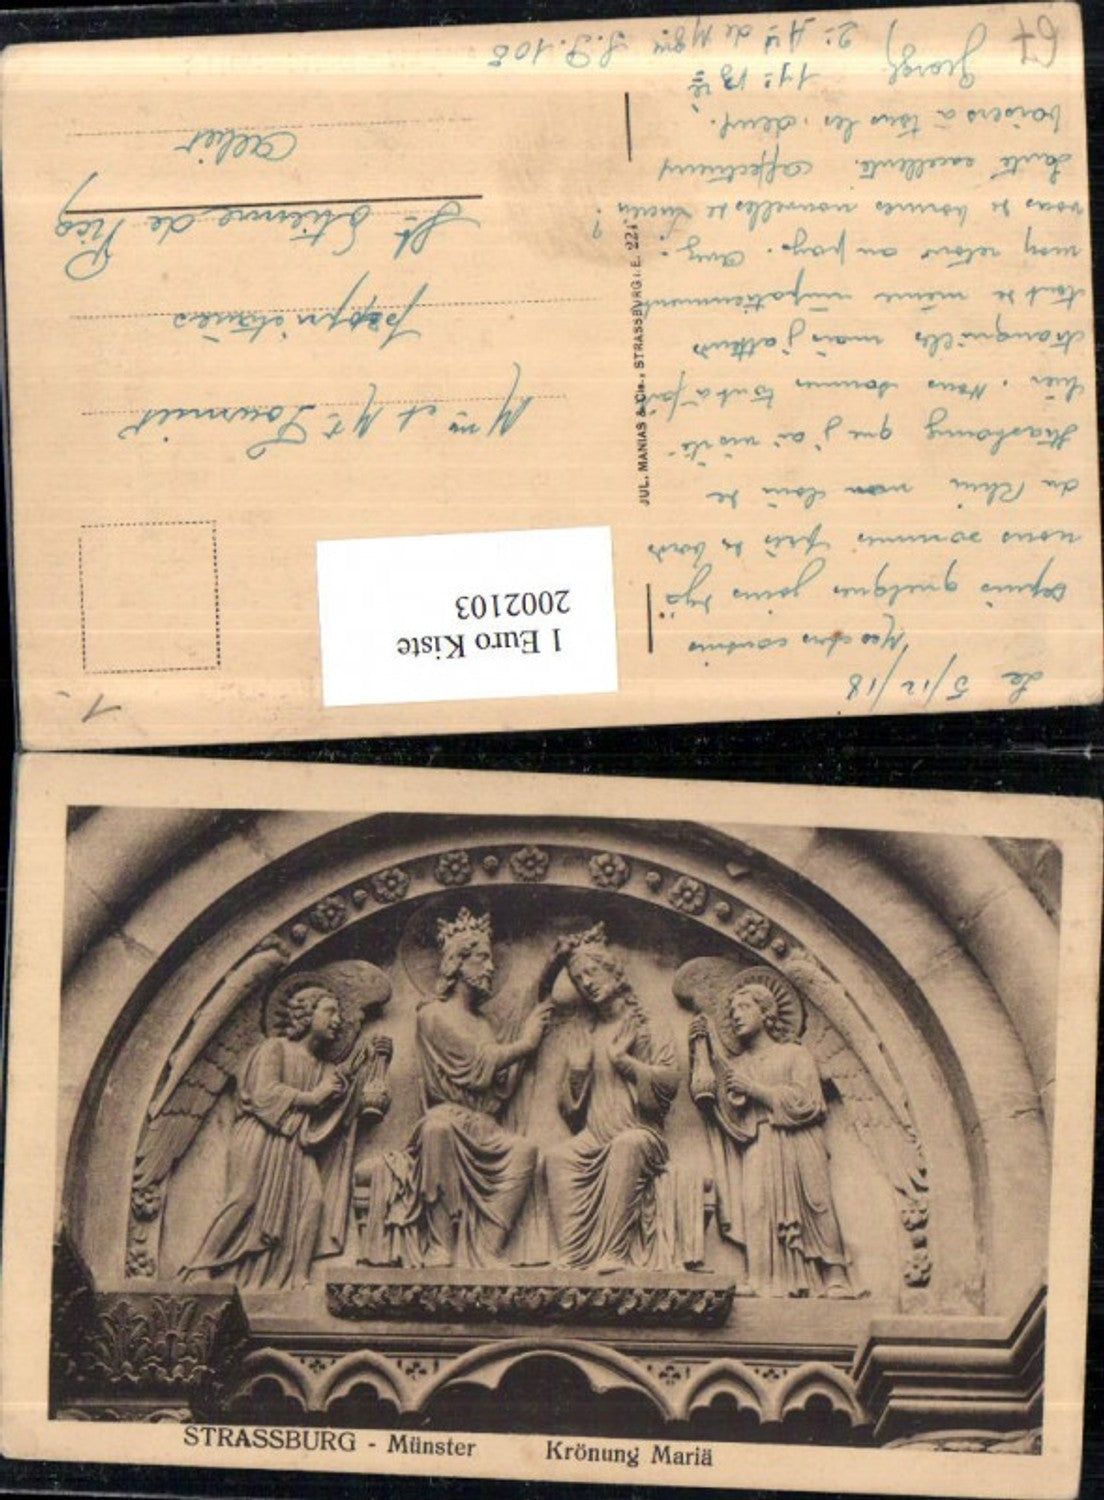 Le 5/12/18
Mes chers cousins
Depuis quelques jours déjà
nous sommes près de bords
du Rhin non loin de
Strasbourg que j'ai visité
hier. Nous sommes tout à fait
tranquilles mais j'attends
tout de même impatiemment
mon retour au pays.
vous de bonnes nouvelles de Lucien ?
Santé excellente. Affectueux
baisers à tous les deux.
Georges
11e 13
2e de S.P. 105
67
JUL. MANIAS & Cie., STRASSBURG i. E. 221
Mme et Mr Fournier
propriétaires
St Etienne de Vicq
Allier
1 Euro Kiste
2002103
1.-
STRASSBURG - Münster Krönung Mariä